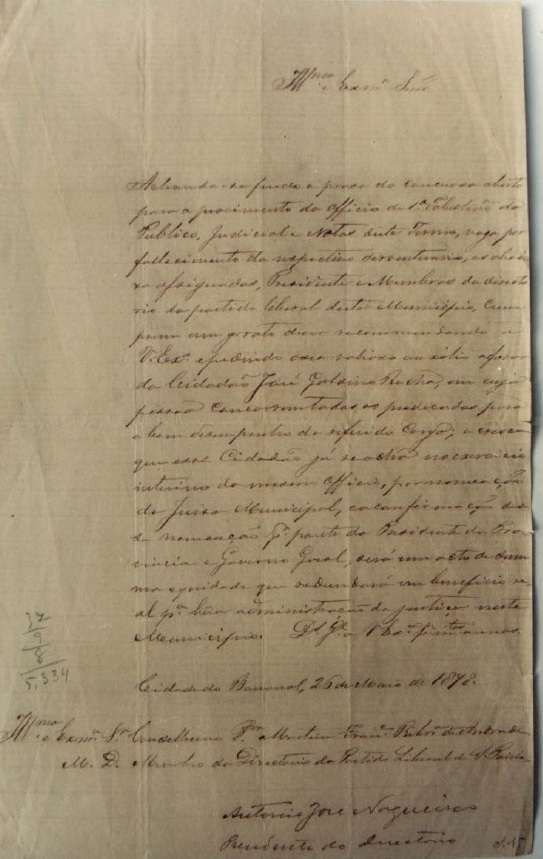 Illmo e Exmo Snr
Achando-se findo o praso do concurso aberto
para o provimento do Officio de 1º Tabellião do
Publico, Judicial e Notas deste Termo, vago por
fallecimento do respectivo serventuario, os abai-
xo assignados, Presidente e Membros do directo-
rio do partido liberal deste Municipio, cum-
prem um grato dever recommendando a
V. Exª e pedindo o seu valioso auxilio a favor
do Cidadão José Galdino Rocha, em cuja
pessoa concorrem todos os predicados para
o bom desempenho do referido Cargo, e cresce
que esse Cidadão já se acha no exercicio
interino do mesmo Officio, por nomeação
do Juiso Municipal, e a confirmação des-
sa nomeação pr parte do Presidente da Pro-
vincia e Governo Geral, será um acto de sum-
ma equidade que redundará em beneficio re-
al pª bôa administração da justiça neste
Municipio. Ds Ge a V. Exª pr mtos annos.
Cidade do Bananal, 26 de Maio de 1878.
Illmo e Exmo Sr Conselheiro Martim Franco Ribro de Andrada
M. D. Membro do Directorio do Partido Liberal de S. Paulo
Antonio José Nogueira
Presidente do Directorio
5,334